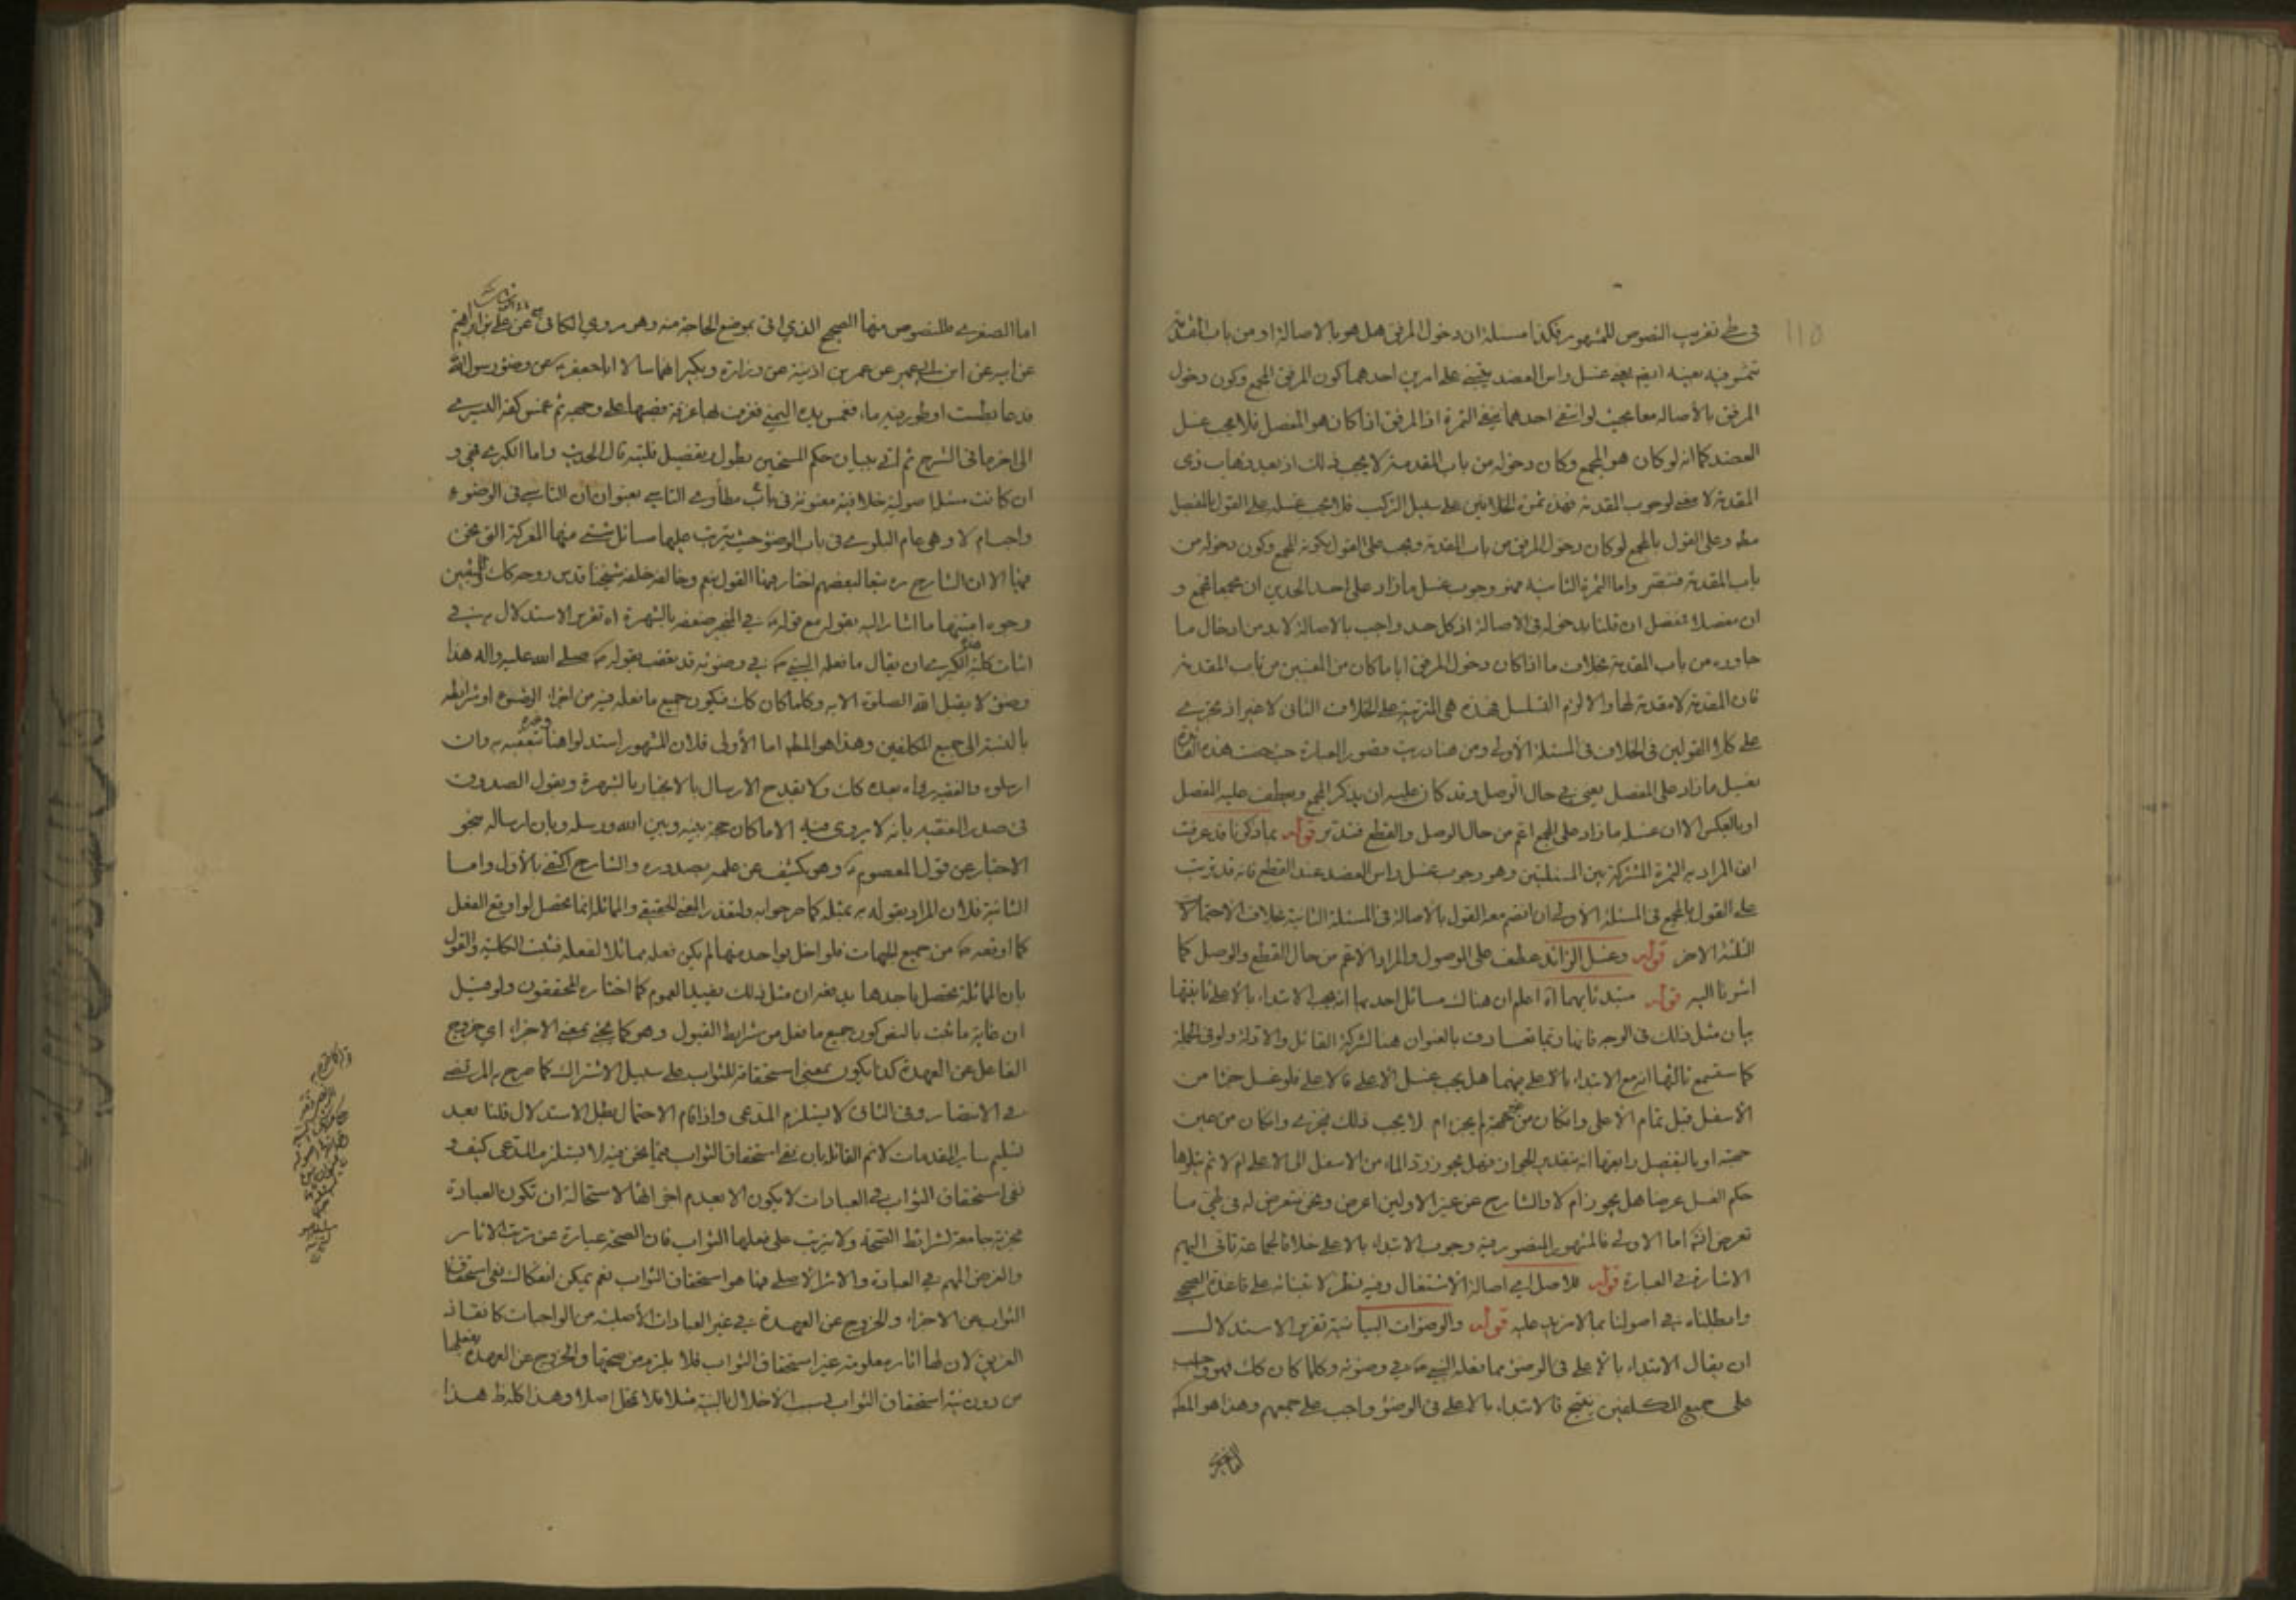 في طي تقريب النصوص للمشهور فكذا مسئلة ان دخول المرفق هل هو بالاصالة او من باب المقدمة
فيه بعينه ايضا يعني غسل راس العضد يبتني على امرين احدهما كون المرفق المجمع وكون دخول
المرفق بالأصالة معا بحيث لو انتفى احدهما ينتفي الثمرة اذ المرفق اذا كان هو المفصل فلا يجب غسل
العضد كما انه لو كان هو المجمع وكان دخوله من باب المقدمة لا يجب ذلك اذ بعد ذهاب ذي
المقدمة لا معنى لوجوب المقدمة فهذه ثمرة الخلافين على سبيل التركب فلا يجب غسله على القول بالمفصل
مطه وعلى القول بالمجمع لو كان دخول المرفق من باب المقدمة ويجب على القول بكونه المجمع وكون دخوله من
باب المقدمة فتبصر واما الثمرة الثانية فهو وجوب غسل ما زاد على احد الحدين ان مجمعا فمجمع و
ان مفصلا فمفصل ان قلنا بدخوله في الاصالة اذ كل حد واجب بالاصالة لا بد من ادخال ما
جاوره من باب المقدمة بخلاف ما اذا كان دخول المرفق ايا ما كان من المعنيين من باب المقدمة
فان المقدمة لا مقدمة لها والا لزم التسلسل فهذه هي المترتبة على الخلاف الثاني لا غير اذ تجري
على كلا القولين في الخلاف في المسئلة الأولى ومن هنا دريت قصور العبارة حيث خصت هذه الفائدة
بغسل ما زاد على المفصل يعني في حال الوصل وقد كان عليه ان يذكر المجمع ويعطف عليه المفصل
او بالعكس الا ان غسله ما زاد على المجمع اعم من حال الوصل والقطع فتدبر قوله بما ذكرنا قد عرفت
ان المراد به الثمرة المشتركة بين المسئلتين وهو وجوب غسل راس العضد عند القطع فانه قد ترتب
على القول بالمجمع في المسئلة الأولى ان انضم معه القول بالاصالة في المسئلة الثانية بخلاف الاحتمالات
الثلثة الاخر قوله وغسل الزائد عطف على الوصول والمراد الاعم من حال القطع والوصل كما
اشرنا اليه قوله مبتدئا بهما اه اعلم ان هناك مسائل احدها انه يجب الابتداء بالاعلى ثانيها
بيان مثل ذلك في الوجه فانها وتصادفت بالعنوان هنا لشركة القائل والادلة ولو في الجملة
كما ستسمع ثالثها انه مع الابتداء بالاعلى منهما هل يجب غسل الاعلى فالاعلى فلو غسل جزئا من
الأسفل قبل تمام الأعلى وان كان من غير جهته لم يجز ام لا يجب ذلك فيجزي وان كان من عين
جهته او بالتفصيل رابعها انه بتقدير الجواز فهل يجوز رد الماء من الاسفل الى الاعلى ام لا ثم يتلوها
حكم الغسل عرضا هل يجوز ام لا والشارح عن غير الاولين اعرض ونحن نتعرض له في طي ما
تعرض انشاء اما الاولى فالمشهور المنصور فيه وجوب الابتداء بالاعلى خلافا لجماعة تاتي اليهم
الاشارة في العبارة قوله للاصل اي اصالة الاشتغال وفيه نظر لابتنائه على قاعدة الصحيح
وابطلناه في اصولنا بما لا مزيد عليه قوله والوضوات البيانية تقرير الاستدلال
ان يقال الابتداء بالاعلى في الوضوء مما فعله النبي ص في وضوئه وكلما كان كك فهو واجب
على جميع المكلفين ينتج فالابتداء بالاعلى في الوضوء واجب على جميعهم وهذا هو المط
اما الصغرى
اما الصغرى فللنصوص منها الصحيح الذي اتى بموضع الحاجة منه وهو مروي الكافي عن علي بن ابراهيم
عن ابيه عن ابن ابي عمير عن عمر بن اذينة عن زرارة وبكير انهما سالا ابا جعفر ع عن وضوء رسول الله
فدعا بطست او طور فيه ماء فغمس يده اليمنى فغرف بها غرفة فصبها على وجهه ثم غمس كفه اليسرى
الى اخر ما في الشرح ثم اتى ببيان حكم المسحين بطول وتفصيل فليته قال الحديث واما الكبرى فهي و
ان كانت مسئلة اصولية خلافية معنونة في باب مطاوي التاسي بعنوان ان التاسي في الوضوء
واجب ام لا وهي عام البلوى في باب الوضوء حيث يترتب عليها مسائل شتى منها المعركة التي نحن
فيها الا ان الشارح ره تبعا لبعضهم اختار فيها القول بنعم وخالفه خلفه شيخنا قدس روحه كك
وجوه امتنها ما اشار اليه بقوله مع قوله ص في المنجبر ضعفه بالشهرة اه تقرير الاستدلال به في
اثبات كلية الكبرى ان يقال ما فعله النبي ص في وضوئه قد تعقب بقوله ص صلى الله عليه واله هذا
وضوء لا يقبل الله الصلوة الا به وكلما كان كك فيكون جميع ما فعله فيه من اجزاء الوضوء او شرائطه
بالنسبة الى جميع المكلفين وهذا هو المط اما الأولى فلان المشهور استدلوا هنا بتعقبه به وان
ارسلوه والفقيه رواه بعده كك ولا يقدح الارسال بالانجبار بالشهرة وبقول الصدوق
في صدر الفقيه بانه لا يروي فيه الا ما كان حجة بينه وبين الله ورسله وبان ارساله بنحو
الاخبار عن قول المعصوم ع وهو كشف عن علمه بصدوره والشارح اكتفى بالأول واما
الثانية فلان المراد بقوله به بمثله كما صرحوا به ولتعذر المعنى الحقيقي والمماثلة انما تحصل لو اوقع الفعل
كما اوقعه ص من جميع الجهات فلو اخل بواحد منها لم يكن فعله مماثلا لفعله فثبت الكلية والقول
بان المماثلة تحصل باحدها يدفعه ان مثل ذلك يفيد العموم كما اختاره المحققون ولو قيل
ان غاية ما ثبت بالنص كون جميع ما فعل من شرايط القبول وهو كما يجئ بمعنى الاجزاء اي خروج
الفاعل عن العهدة كذا يكون بمعنى استحقاقه للثواب على سبيل الاشتراك كما صرح به المرتضى
في الانتصار وفي الثاني لا يستلزم المدعى واذا قام الاحتمال بطل الاستدلال قلنا بعد
تسليم ساير المقدمات لا نم القائل بان نفي استحقاق الثواب فيما نحن فيه لا يستلزم المدعى كيف و
نفي استحقاق الثواب في العبادات لا يكون الا بعدم اجزائها لاستحالة ان تكون العبادة
مجزية جامعة لشرائط الصحة ولا يترتب على فعلها الثواب فان الصحة عبارة عن ترتب الاثار
والغرض المهم في العبادة والاثر الاصلي فيها هو استحقاق الثواب نعم يمكن انفكاك نفي استحقاق
الثواب عن الاجزاء والخروج عن العهدة في غير العبادات الأصلية من الواجبات كانقاذ
الغريق لان لها اثار معلومة غير استحقاق الثواب فلا يلزم من صحتها والخروج عن العهدة بفعلها
من دون نية استحقاق الثواب بسبب الاخلال بالنية مثلا فلا تخل اصلا وهذا كله ظ هذا